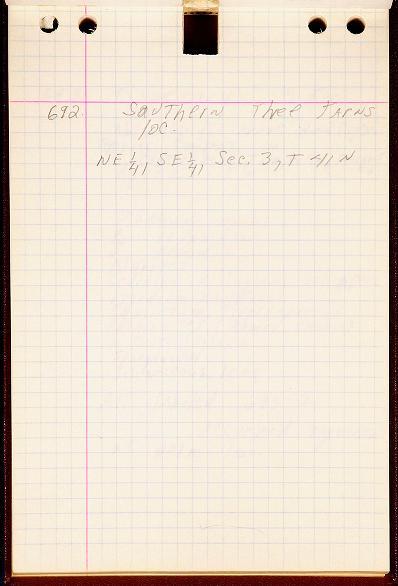 692. Southern Thee Farns
loc.
NE 1/4, SE 1/4, Sec. 3, T 41 N